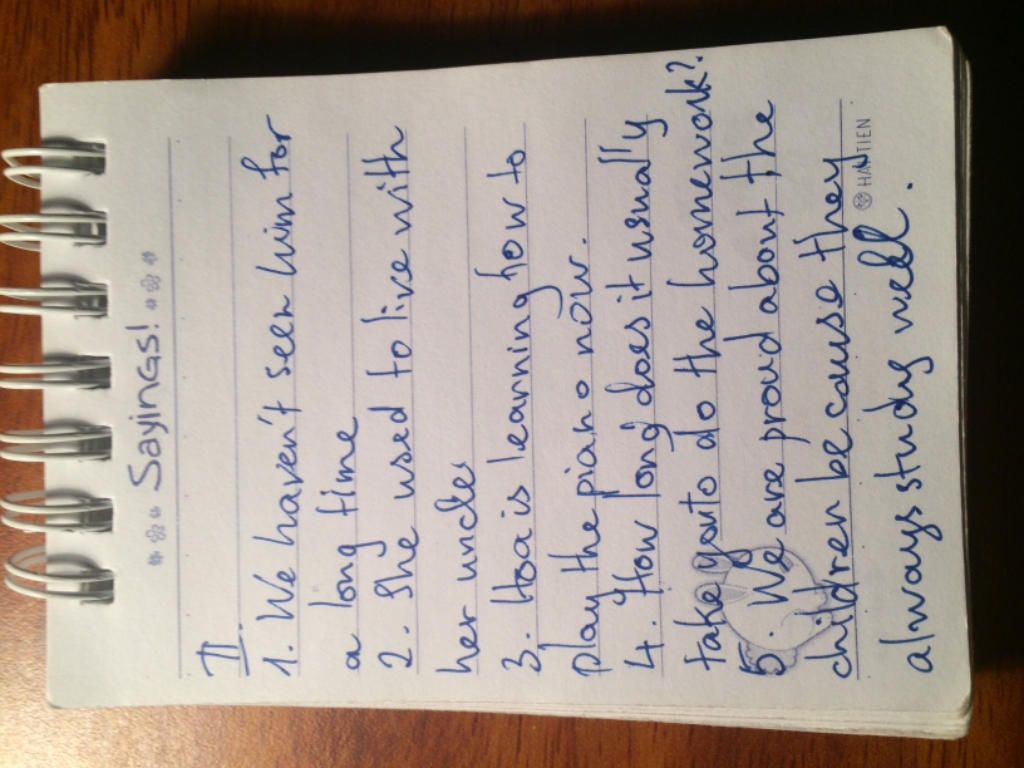 Sayings!
II
1. We haven't seen him for
a long time
2. She used to live with
her uncle
3. Hoa is learning how to
play the piano now.
4. How long does it usually
take you to do the homework?
5. We are proud about the
children because they
HAPTIEN
always study well.